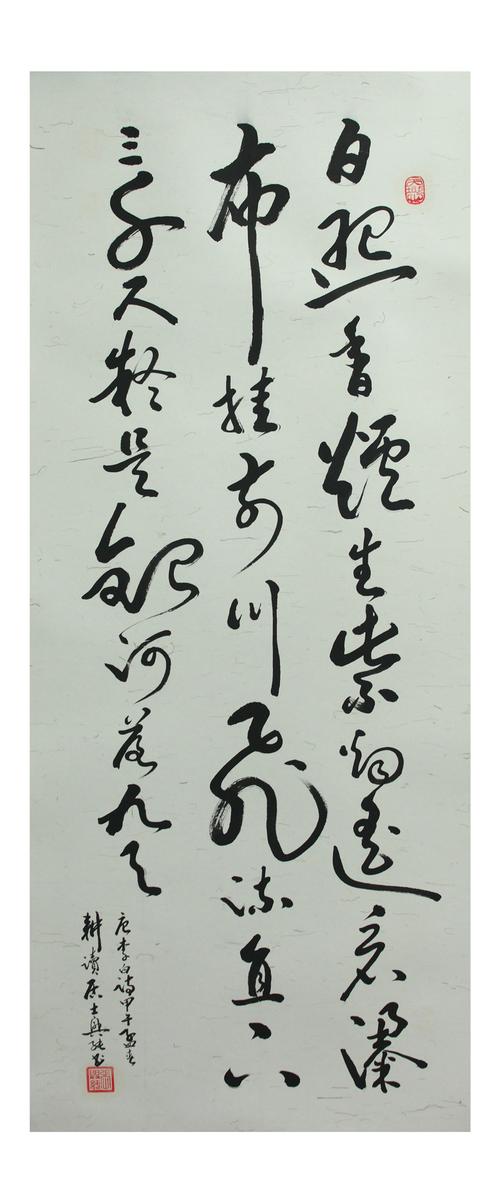 日照香爐生紫烟遥看瀑
布挂前川飛流直下
三千尺疑是銀河落九天
唐李白詩甲午孟春
耕讀居士興